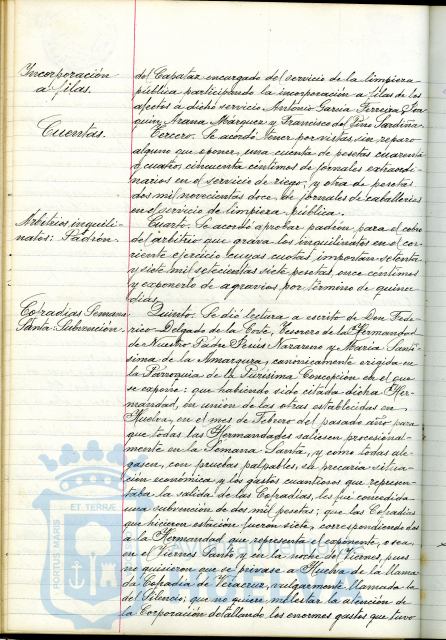 Incorporación
a filas.
Cuentas.
Arbitrios inquili-
natos: Padrón.
Cofradías Semana
Santa: Subvención.
del Capataz encargado del servicio de la limpieza
pública participando la incorporación a filas de los
afectos á dicho servicio Antonio García Ferreira, Joa-
quin Arana Márquez y Francisco del Pino Sardiña.
Tercero. Se acordó tener por vistas, sin reparo
alguno que oponer, una cuenta de pesetas cuarenta
y cuatro, cincuenta céntimos de jornales extraordi-
narios en el servicio de riego; y otra de pesetas
dos mil novecientas doce, de jornales de caballerías
en el servicio de limpieza pública.
Cuarto. Se acordó aprobar padrón para el cobro
del arbitrio que grava los inquilinatos en el cor-
riente ejercicio cuyas cuotas importan setenta
y siete mil setecientas siete pesetas, once céntimos
y exponerlo de agravios por término de quince
días.
Quinto. Se dió lectura a escrito de Don Fede-
rico Delgado de la Corte, Tesorero de la Hermandad
de Nuestro Padre Jesús Nazareno y María Santí-
sima de la Amargura, canónicamente erigida en
la Parroquia de la Purísima Concepción en el que
se expone: que habiendo sido citada dicha Her-
mandad, en unión de las otras establecidas en
Huelva, en el mes de Febrero del pasado año para
que todas las Hermandades saliesen procesional-
mente en la Semana Santa, y como todas ale-
gasen, con pruebas palpables, su precaria situa-
ción económica y los gastos cuantiosos que represen-
taba la salida de las Cofradías, les fué concedida
una subvención de dos mil pesetas; que las Cofradías
que hicieron estación fueron siete, correspondiendo dos
a la Hermandad que representa el exponente, o sea,
en el Viernes Santo y en la noche del Viernes, pues
no quisieron que se privase a Huelva de la llama-
da Cofradía de Veracruz, vulgarmente llamada la
del Silencio; que no quiere molestar la atención de
la Corporación detallando los enormes gastos que tuvo
PORTUS MARIS ET TERRÆ